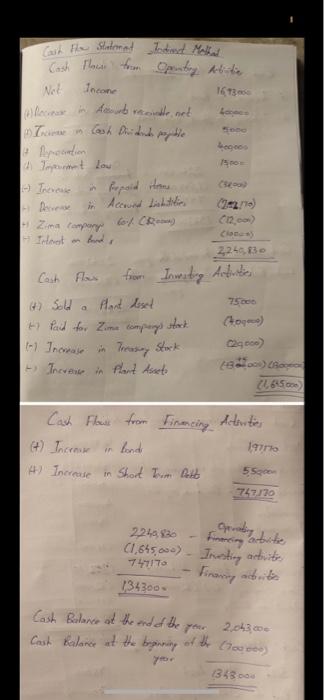 Cash Flow Statement Indirect Method
Cash Flows from Operating Activities
Net Income 1693000
(+) Decrease in Accounts receivable, net 400000
(+) Increase in Cash Dividends payable 5000
(+) Depreciation 400000
(+) Impairment Loss 15000
(-) Increase in Prepaid Items
(-) Decrease in Accrued Liabilities
(-) Zima company 60%
(-) Interest on Bonds
2,240,830
Cash Flows from Investing Activities
(+) Sold a Plant Asset 75000
(-) Paid for Zima company stock (400,000)
(-) Increase in Treasury Stock
(-) Increase in Plant Assets
(1,645,000)
Cash Flows from Financing Activities
(+) Increase in bonds 197170
(+) Increase in Short Term Debts 550,000
747,170
2240,830 - Operating activities
(1,645,000) - Investing activities
747170 - Financing activities
1343000
Cash Balance at the end of the year 2,043,000
Cash Balance at the beginning of the year (700 000)
1343 000